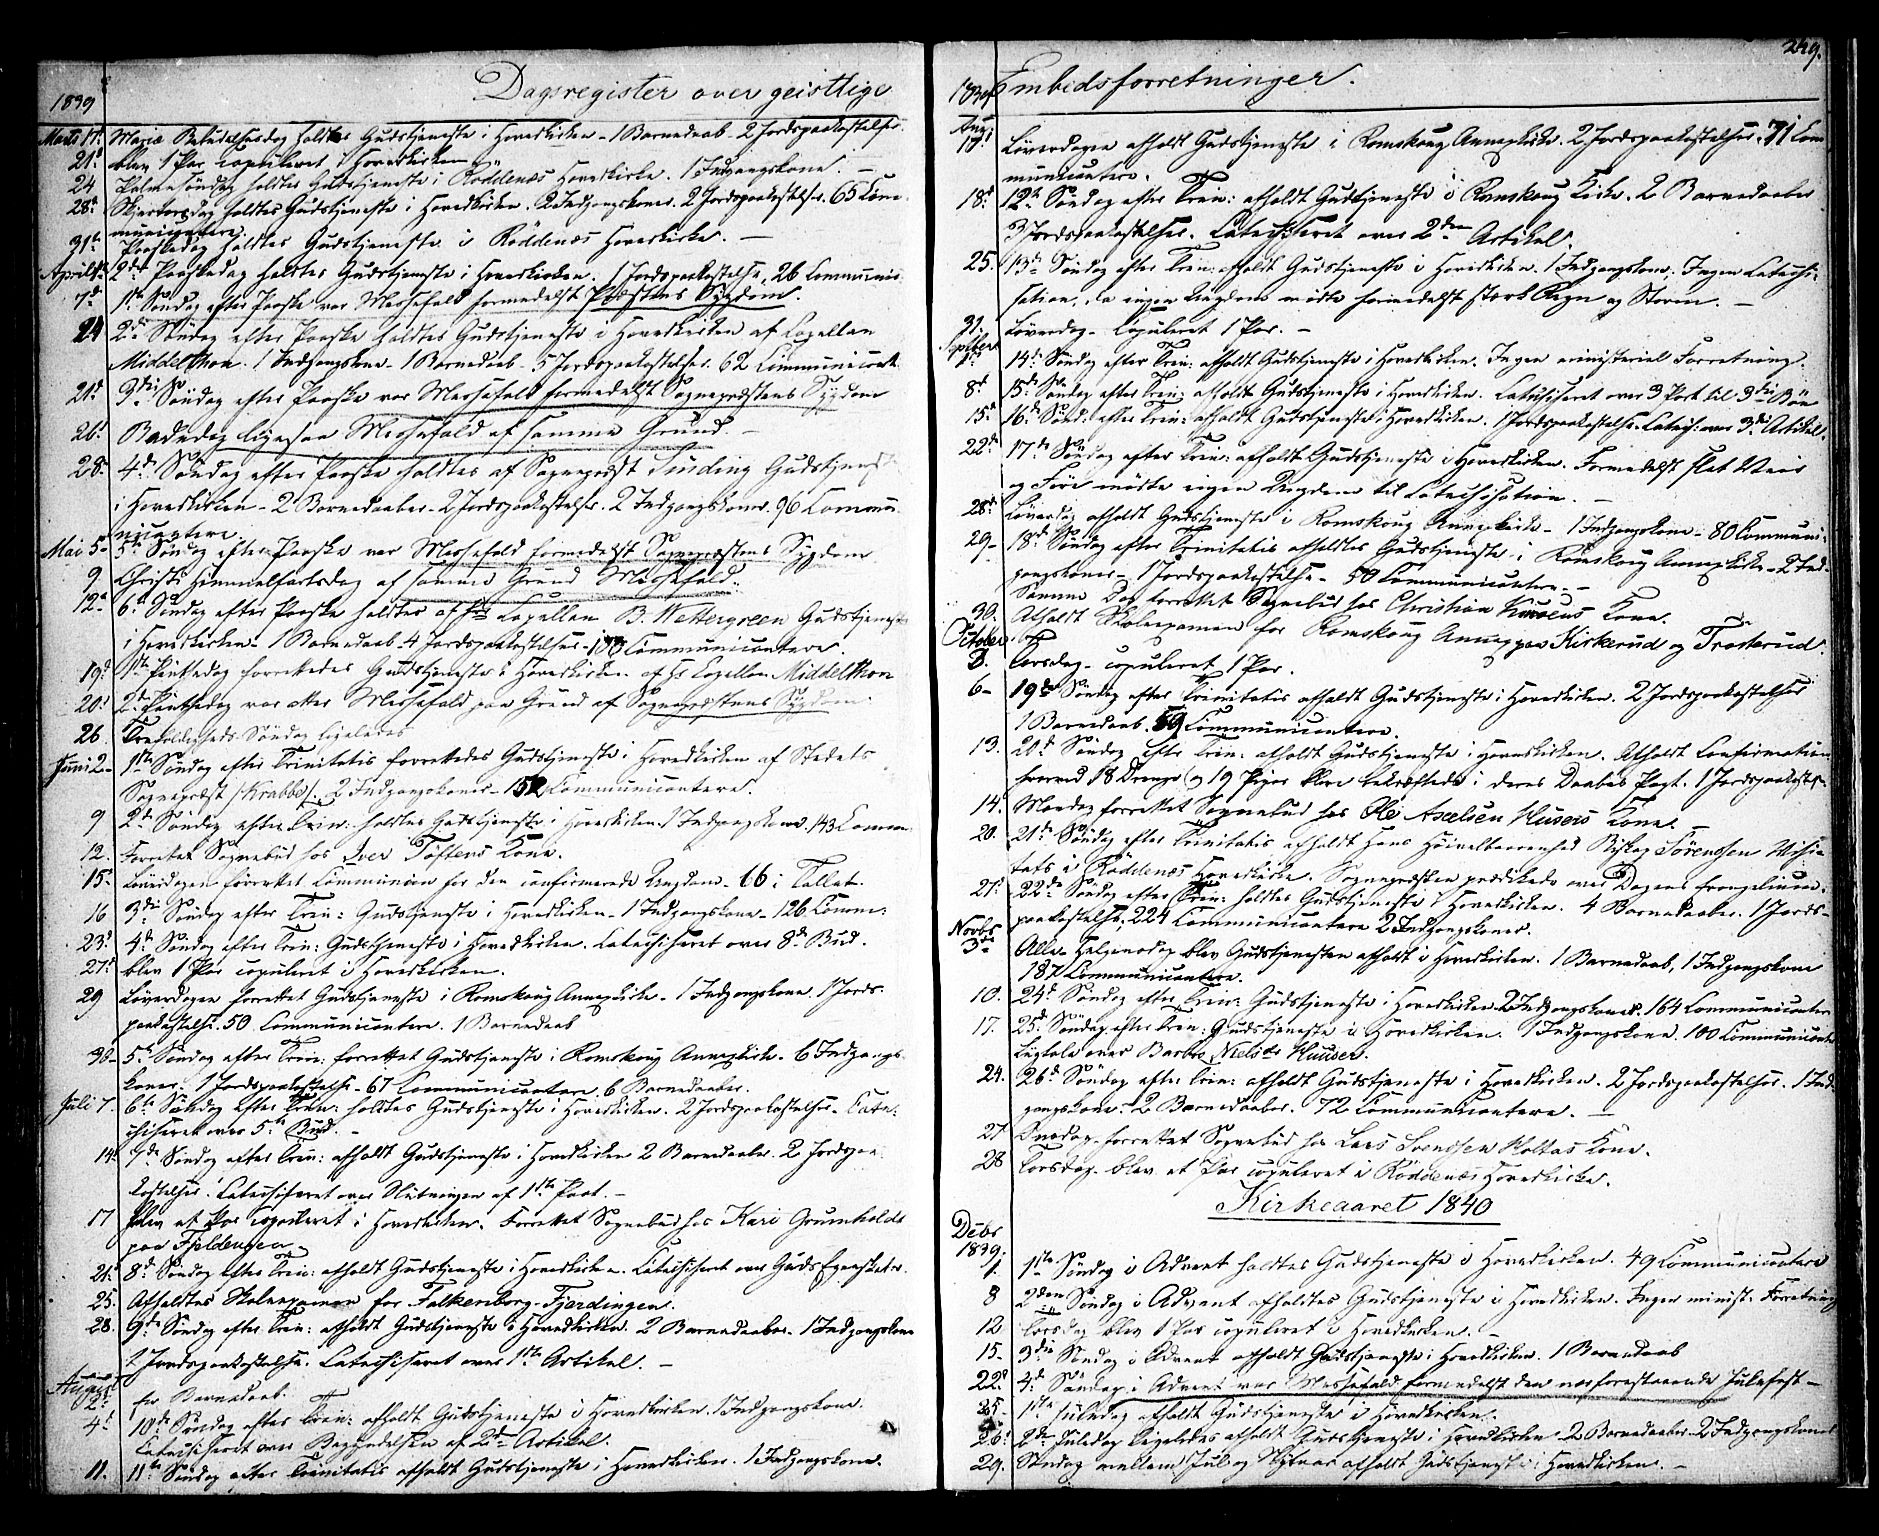 249.
Dagsregister over geistlige
1839
Marts 17.
Mariæ Bebudelsesdag holdtes Gudstjeneste i Hovedkirken - 1 Barnedaab - 2 Jordspaakastelser.
21.
blev 1 Par copuleret i Hovedkirken
24
Palmesöndag holdtes Gudstjeneste i Röddenæs Hovedkirke. 1 Indgangskone. —
28.
Skjertorsdag holdtes Gudstjeneste i Hovedkirken. 2 Indgangskoner. 2 Jordspaakastelser. 65 Com-
municantere.
31te
Paaskedag holdtes Gudstjeneste i Röddenæs Hovedkirke. —
April 1.
2den Paaskedag holdtes Gudstjeneste i Hovedkirken. 1 Jordspaakastelse, 26 Communic
7de
1ste Söndag efter Paaske var Messefald formedelst Præstens Sygdom.
14
2den Söndag efter Paaske holdtes Gudstjeneste i Hovedkirken af Capellan
Middelthon. 1 Indgangskone - 1 Barnedaab - 5 Jordspaakastelser. 62 Communicant.
21d
3die Söndag efter Paaske var Messefald formedelst Sognepræstens Sygdom
26d
Bededag ligesaa Messefald af samme Grund. —
28.
4de Söndag efter Paaske holdtes af Sognepræst Sinding Gudstjeneste
i Hovedkirken - 2 Barnedaaber - 2 Jordspaakastelser. 2 Indgangskoner. 96 Commu-
nicantere.
Mai 5-
5te Söndag efter Paaske var Messefald formedelst Sognepræstens Sygdom
9
Christi Himmelfartsdag af samme Grund Messefald.
12te
6te Söndag efter Paaske holdtes af Hr Capellan B. Wettergreen Gudstjeneste
i Hovedkirken - 1 Barnedaab - 4 Jordspaakastelser - Communicantere.
19d
1ste Pintsedag forrettedes Gudstjeneste i Hovedkirken af Hr Capellan Middelthon
20d
2d Pintsedag var atter Messefald paa Grund af Sognepræstens Sygdom
26
Trefoldigheds Söndag ligeledes
Juni 2-
1ste Söndag efter Trinitatis forrettedes Gudstjeneste i Hovedkirken af Stedets
Sognepræst (Krabbe). 2 Indgangskoner - 152 Communicantere.
9
2den Söndag efter Trin: holdtes Gudstjeneste i Hovedkirken. 1 Indgangskone. 143 Comm.
12.
Forrettet Sognebud hos Iver Töftens Kone.
15.
Löverdagen forrettet Communion for den confirmerede Ungdom - 66 i Tallet.
16
3die Söndag efter Trin: Gudstjeneste i Hovedkirken - 1 Indgangskone - 126 Comm:
23d
4d Söndag efter Trin: Gudstjeneste i Hovedkirken. Catechiseret over 8d Bud.
27d
blev 1 Par copuleret i Hovedkirken.
29
Löverdagen forrettet Gudstjeneste i Romskoug Annexkirke - 1 Indgangskone. 1 Jords-
paakastelse. 50 Communicantere. 1 Barnedaab
30-
5te Söndag efter Trin: forrettet Gudstjeneste i Romskoug Annexkirke. 6 Indgangs
koner. 1 Jordspaakastelse - 67 Communicantere. 6 Barnedaaber.
Juli 7.
6te Söndag efter Trin: holdtes Gudstjeneste i Hovedkirken. 2 Jordspaakastelser. Cate-
chiseret over 5te Bud. —
14.
7de Söndag efter Trin: afholdt Gudstjeneste i Hovedkirken 2 Barnedaaber. 2 Jordspaa-
kastelser. Catechiseret over Slutningen af 1ste Part. —
17
blev et Par copuleret i Hovedkirken. Forrettet Sognebud hos Kari Grumholdt
paa Fjeldengen.
21.
8d Söndag efter Trin: afholdt Gudstjeneste i Hovedkirken. Catechiseret over Guds Egenskaber.
25.
Afholdtes Skoleexamen for Falkenborg-Fjerdingen.
28.
9de Söndag efter Trin: afholdt Gudstjeneste i Hovedkirken. 2 Barnedaaber. 1 Indgangskone
2 Jordspaakastelser. Catechiseret over 1ste Artikel. —
August 2d
en Barnedaab.
4d
10de Söndag efter Trin: afholdt Gudstjeneste i Hovedkirken. 1 Indgangskone.
Catechiseret over Begyndelsen af 2den Artikel.
11.
11te Söndag efter Trinitatis afholdt Gudstjeneste i Hovedkirken. 1 Indgangskone.
Embedsforretninger.
1839
Aug: 17d
Löverdagen afholdt Gudstjeneste i Romskoug Annexkirke. 2 Jordspaakastelser. 71 Com
municantere.
18d
12te Söndag efter Trin: afholdt Gudstjeneste i Romskoug Kirke. 2 Barnedaaber
3 Jordspaakastelser. Catechiseret over 2den Artikel.
25.
13de Söndag efter Trin: afholdt Gudstjeneste i Hovedkirken. 1 Indgangskone. Ingen Catechi-
sation, da ingen Ungdom mödte formedelst stærk Regn og Storm. —
31.
Löverdag - Copuleret 1 Par. —
Septber 1ste
14de Söndag efter Trin: afholdt Gudstjeneste i Hovedkirken. Ingen ministeriel Forretning.
8d
15de Söndag efter Trin: afholdt Gudstjeneste i Hovedkirken. Catechiseret over 3 Part til 3die Bön
15d
16de Sönd: efter Trin: afholdt Gudstjeneste i Hovedkirken. 1 Jordspaakastelse. Catech: over 3die Artikel.
22de
17de Söndag efter Trin: afholdt Gudstjeneste i Hovedkirken. Formedelst slet Veir
og Före mödte ingen Ungdom til Catechisation. —
28d
Löverdag afholdt Gudstjeneste i Romskoug Annexkirke - 1 Indgangskone - 80 Communi-
29-
18d Söndag efter Trinitatis afholdtes Gudstjeneste i Romskoug Annexkirke - 2 Ind-
gangskoner - 1 Jordspaakastelse - 50 Communicantere. —
Samme Dag forrettet Sognebud hos Christian Kone.
30.
Afholdt Skoleexamen for Romskoug Annex paa Kirkerud og Trosterud.
October 3.
Torsdag - copuleret 1 Par.
6-
19de Söndag efter Trinitatis afholdt Gudstjeneste i Hovedkirken. 2 Jordspaakastelser
1 Barnedaab. 59 Communicantere.
13.
20d Söndag efter Trin: afholdt Gudstjeneste i Hovedkirken. Afholdt Confirmation
hvorved 18 Drenge og 19 Piger bleve bekræftede i deres Daabes Pagt. 1 Jordspaakastelse.
14.
Mandag forrettet Sognebud hos Ole Axelsen Husers Kone. —
20.
21de Söndag efter Trinitatis afholdt Hans Höivelbaarenhed Biskop Sörenssen Visi-
tats i Röddenæs Hovedkirke. Sognepræsten prædikede over Dagens Evangelium.
27d
22de Söndag efter Trin: holdtes Gudstjeneste i Hovedkirken. 4 Barnedaaber. 1 Jords-
paakastelse, 224 Communicantere 2 Indgangskoner.
Novbr 3die
Alle Helgensdag blev Gudstjenesten afholdt i Hovedkirken. 1 Barnedaab, 1 Indgangskone
187 Communicantere.
10.
24d Söndag efter Trin: Gudstjeneste i Hovedkirken 2 Indgangskoner. 164 Communicanter
17.
25d Söndag efter Trin: Gudstjeneste i Hovedkirken. 1 Indgangskone. 100 Communicante
Ligtale over Barbro Nielsdr Huuser.
24.
26d Söndag efter Trin: afholdt Gudstjeneste i Hovedkirken. 2 Jordspaakastelser. 1 Ind-
gangskone. 2 Barnedaaber. 72 Communicantere. —
27
Onsdag forrettet Sognebud hos Lars Svendsen Holtas Kone.
28
Torsdag blev et Par copuleret i Röddenæs Hovedkirke.
Kirkeaaret 1840
Debr 1839.
1.
1ste Söndag i Advent holdtes Gudstjeneste i Hovedkirken. 49 Communicantere
8
2den Söndag i Advent afholdtes Gudstjeneste i Hovedkirken. Ingen minist. Forretning
12
Torsdag blev 1 Par copuleret i Hovedkirken. —
15-
3die Söndag i Advent afholdt Gudstjeneste i Hovedkirken. 1 Barnedaab
22d
4d Söndag i Advent var Messefald formedelst den nærforestaaende Julefest —
25-
1ste Juledag afholdt Gudstjeneste i Hovedkirken.
26d
2den Juledag ligeledes afholdt Gudstjeneste i Hovedkirken. 2 Barnedaaber 2 Indgangskoner
29.
Söndag mellem Jul og Nytaar afholdt Gudstjeneste i Hovedkirken. —